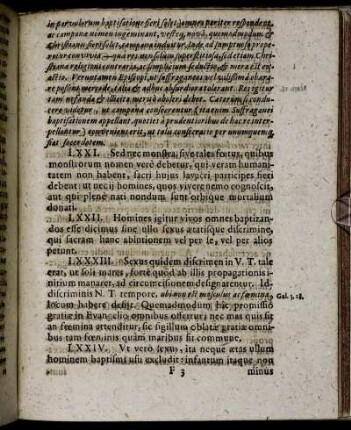 in parvulorum baptisatione fieri solet: semper pariter respondent,
ac campana nomen ingeminant, vestis nova, quemadmodum &
Christianis fieri solet, campana induitur. Inde ad sumptuosa prope-
retur convivia
Christiana religioni contraria, ac simplicium seductio, & mera est ex-
actio. Verumtamen Episcopi, ut suffraganeos
re possint
tam nefanda & illicita meritò aboleri debet. Cæterùm si conduce-
re visum, ut campana consecretur, & titulum Suffraganei
baptisationem appellant, quoties à prudentioribus de hac re inter-
pellantur) convenienter, ut talis consecratio per unumquemq́;
fiat sacerdotem.
LXXI. Sed nec monstra, sive tales fœtus, quibus
monstrorum nomen verè debetur, qui veram humani-
tatem non habent, sacri hujus lavacri participes fieri
debent: ut nec ii homines, quos vivere nemo cognoscit,
aut qui plenè nati nondum sunt orbique mortalium
donati.
LXXII. Homines igitur vivos omnes baptizan-
dos esse dicimus sine ullo sexus ætatisque discrimine,
qui sacram hanc ablutionem vel per se, vel per alios
petunt.
LXXXIII. Sexus quidem discrimen in V. T. tale
erat, ut soli mares, fortè quòd ab illis propagationis i-
nitium manaret, ad circumcisionem designarentur. Id
discriminis N. T. tempore, ubi non est masculus aut fœmina, Gal. 3. 28.
locum habere desiit. Quemadmodum sic promissio
gratiæ in Evangelio omnibus offertur; nec mas quis sit
an fœmina attenditur, sic sigillum oblatæ gratiæ omni-
bus tam fœminis quàm maribus sit commune.
LXXIV. Ut verò sexus, ita neque ætas ullum
hominem baptismi usu excludit: infantum itaque non
F 3 minus